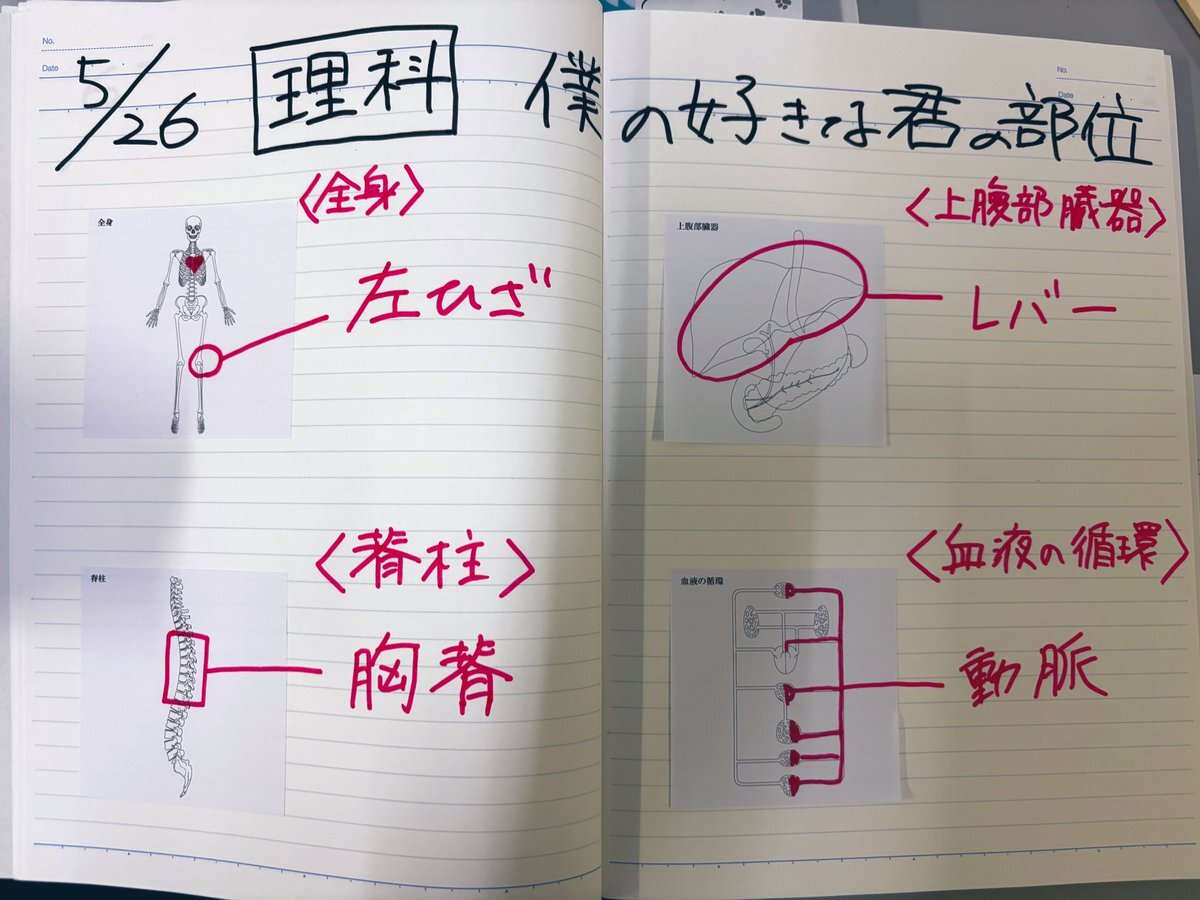 No.
Date
5/26 理科 僕の好きな君の部位
No.
Date
〈全身〉
全身
左ひざ
〈脊柱〉
脊柱
胸脊
〈上腹部臓器〉
上腹部臓器
レバー
〈血液の循環〉
血液の循環
動脈